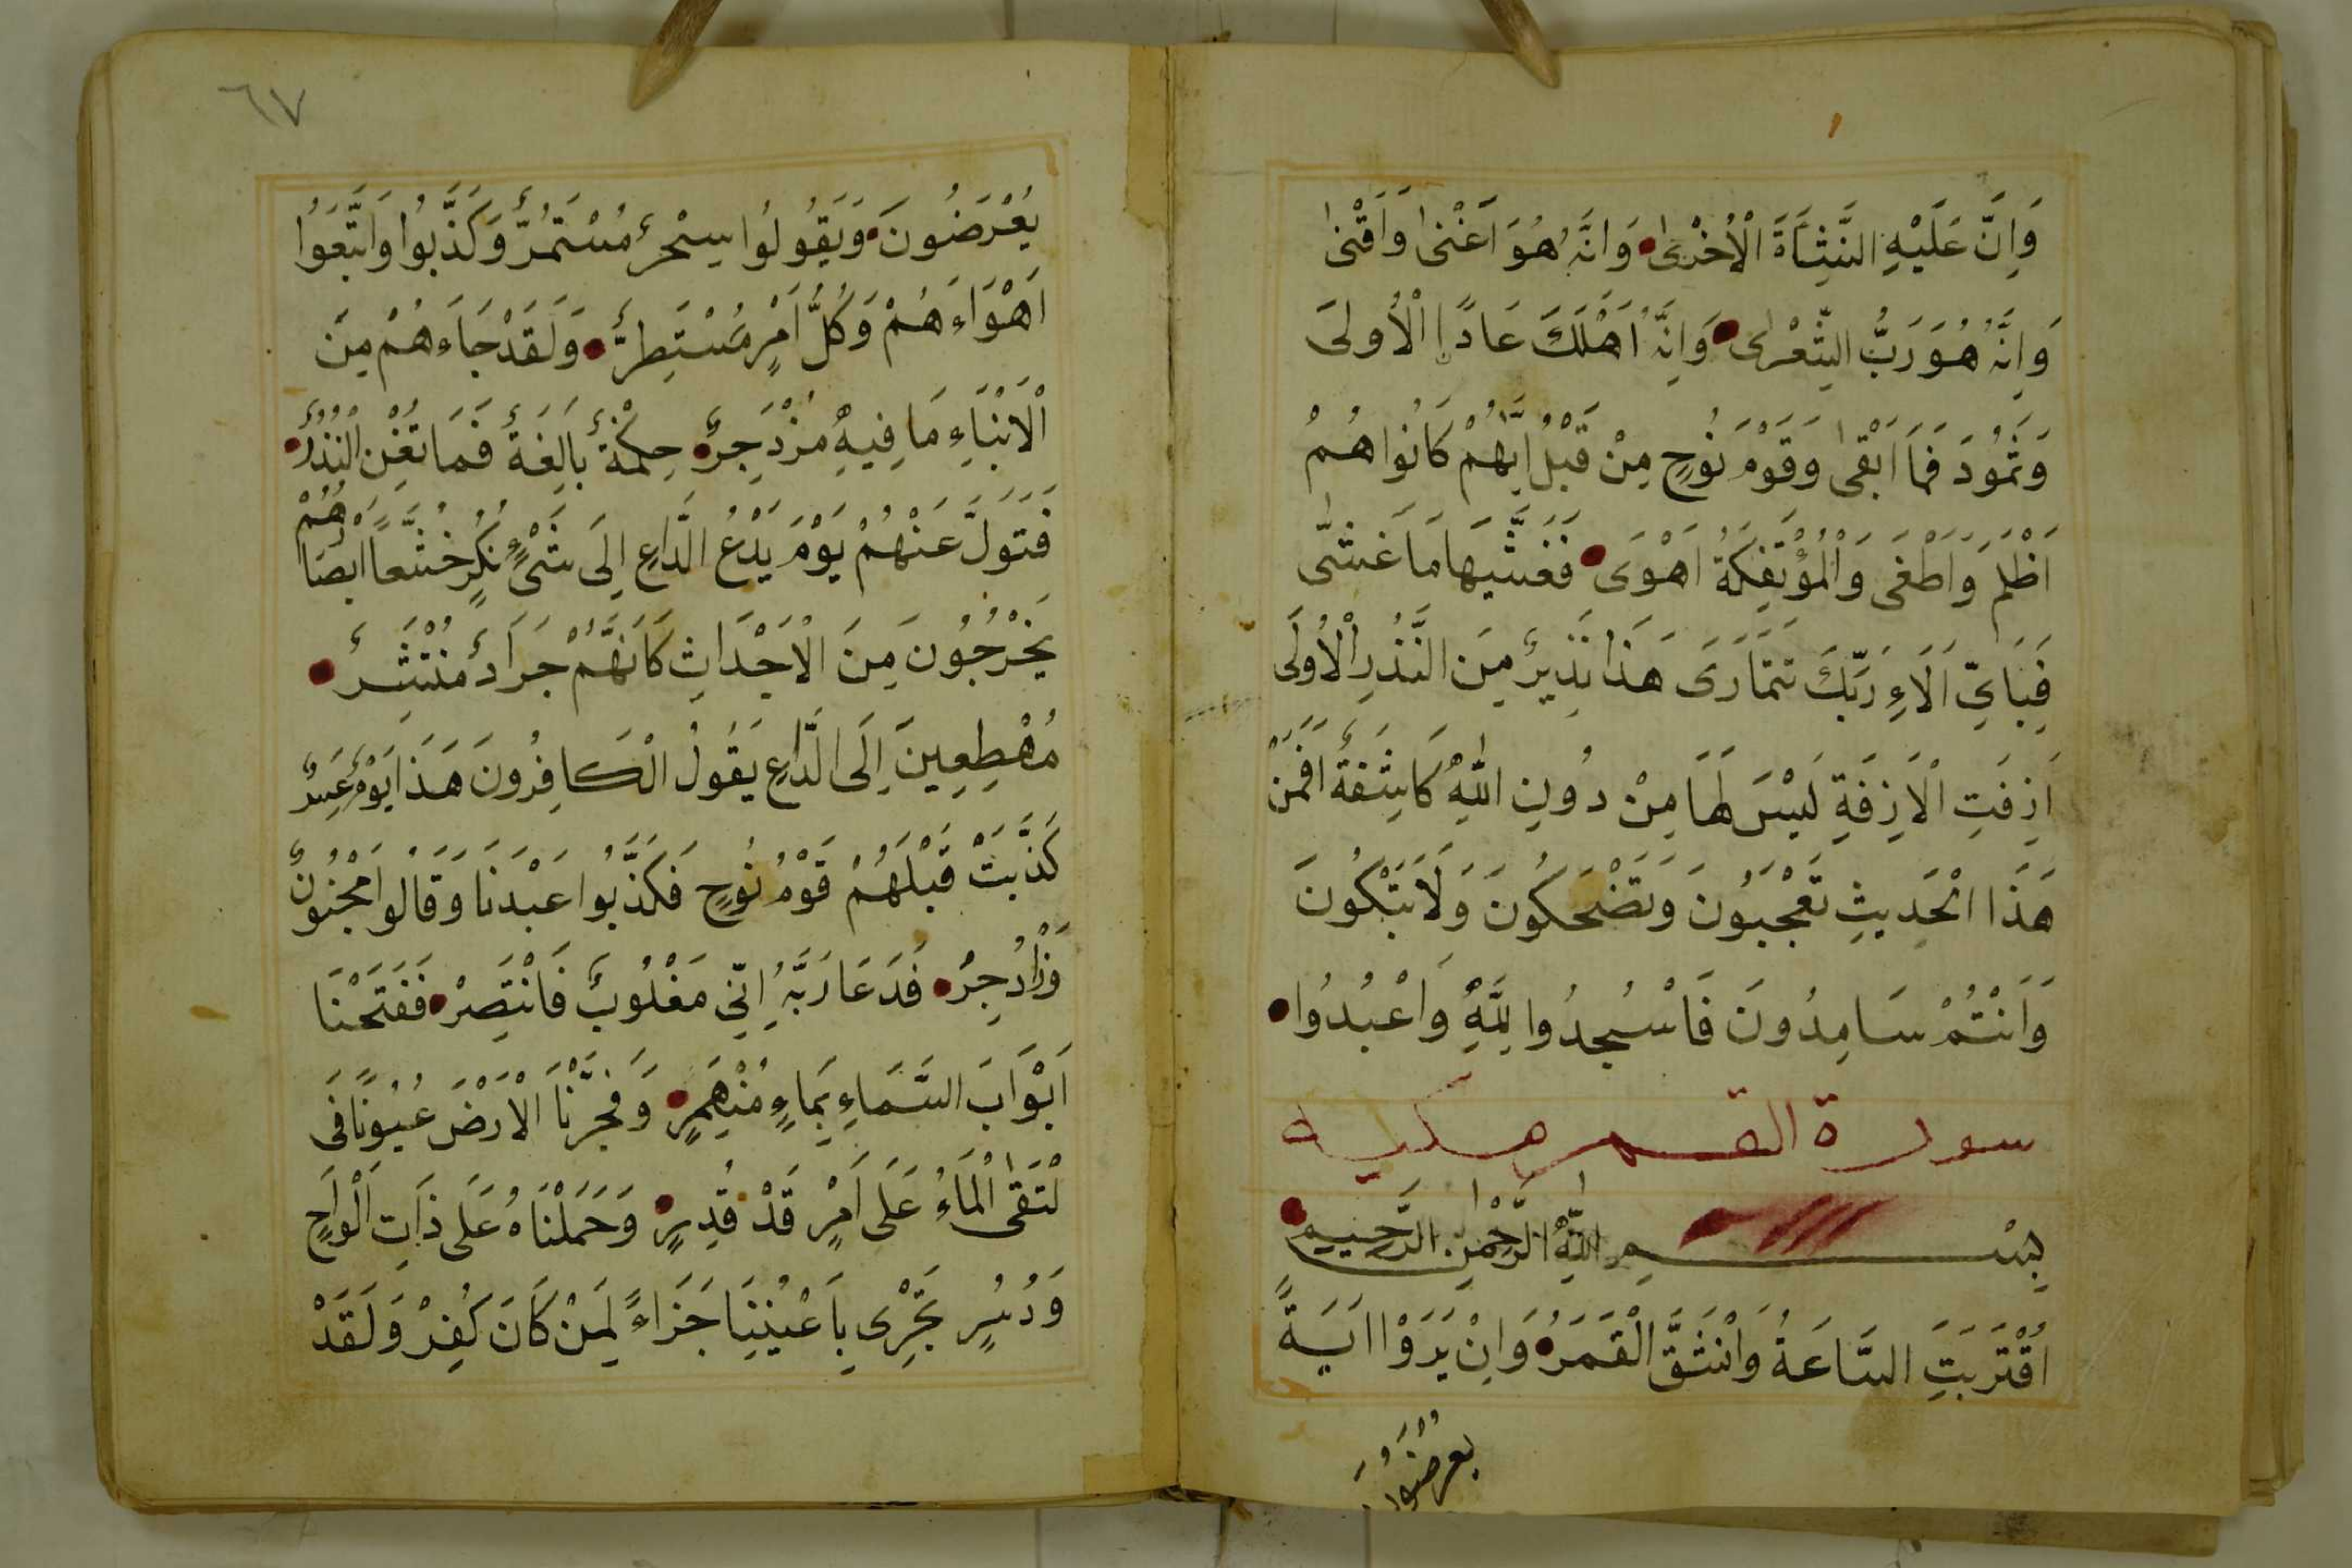 وَاِنَّ عَلَيْهِ النَّشَأَةَ الْاُخْرىٰ وَانَّهُ هُوَ اَغْنىٰ وَاَقْنىٰ
وَاِنَّهُ هُوَ رَبُّ الشِّعْرىٰ وَاِنَّهُ اَهْلَكَ عَادًا الْاُولىَ
وَثَمُودَ فَمَا اَبْقىٰ وَقَوْمَ نُوحٍ مِنْ قَبْلُ اِنَّهُمْ كَانُوا هُمْ
اَظْلَمَ وَاَطْغَى وَالْمُؤْتَفِكَةُ اَهْوَى فَغَشَّيهَا مَا غَشّٰى
فَبِاَيِّ اٰلَاءِ رَبِّكَ تَتَمَارَى هَذَا نَذِيرٌ مِنَ النُّذُرِ الْاُولَى
اَزِفَتِ الْاَزِفَةِ لَيْسَ لَهَا مِنْ دُونِ اللّٰهِ كَاشِفَةٌ اَفَمَنْ
هَذَا الْحَدِيثِ تَعْجَبُونَ وَتَضْحَكُونَ وَلَا تَبْكُونَ
وَاَنْتُمْ سَامِدُونَ فَاسْجُدُوا لِلَّهِ وَاعْبُدُوا
سورة القمر مكية
بِسْمِ اللّٰهِ الرَّحْمٰنِ الرَّحِيمِ
اقْتَرَبَتِ السَّاعَةُ وَانْشَقَّ الْقَمَرُ وَاِنْ يَرَوْا اٰيَةً
يعرضون
٦٧
يُعْرَضُونَ وَيَقُولُوا سِحْرٌ مُسْتَمُرٌّ وَكَذَّبُوا وَاتَّبَعَوُا
اَهْوَاءَهُمْ وَكُلُّ اَمْرٍ مُسْتَطِرٌّ وَلَقَدْ جَاءَهُمْ مِنَ
الْاَنْبَاءِ مَا فِيهِ مُزْدَجِرٌ حِكْمَةٌ بَالِغَةٌ فَمَا تُغْنِ النُّذُرُ
فَتَوَلَّ عَنْهُمْ يَوْمَ يَدْعُ الدَّاعِ اِلَى شَيْءٍ نُكُرٍ خُشَّعاً اَبْصَارُهُمْ
يَخْرُجُونَ مِنَ الْاَجْدَاثِ كَاَنَّهُمْ جَرَادٌ مُنْتَشِرٌ
مُهْطِعِينَ اِلَى الدَّاعِ يَقُولُ الْكَافِرُونَ هَذَا يَوْمٌ عَسِرٌ
كَذَّبَتْ قَبْلَهُمْ قَوْمُ نُوحٍ فَكَذَّبُوا عَبْدَنَا وَقَالُوا مَجْنُونٌ
وَازْدُجِرْ فَدَعَا رَبَّهُ اِنِّي مَغْلُوبٌ فَانْتَصِرْ فَفَتَحْنَا
اَبْوَابَ السَّمَاءِ بِمَاءٍ مُنْهَمِرٍ وَفَجَّرْنَا الْاَرْضَ عُيُونًا فَى
لْتَقَىٰ الْمَاءُ عَلَى اَمْرٍ قَدْ قُدِيرٍ وَحَمَلْنَاهُ عَلَى ذَاتِ اَلْوَاحٍ
وَدُسُرٍ تَجْرِى بِاَعْيُنِنَا جَزَاءً لِمَنْ كَانَ كُفِرْ وَلَقَدْ